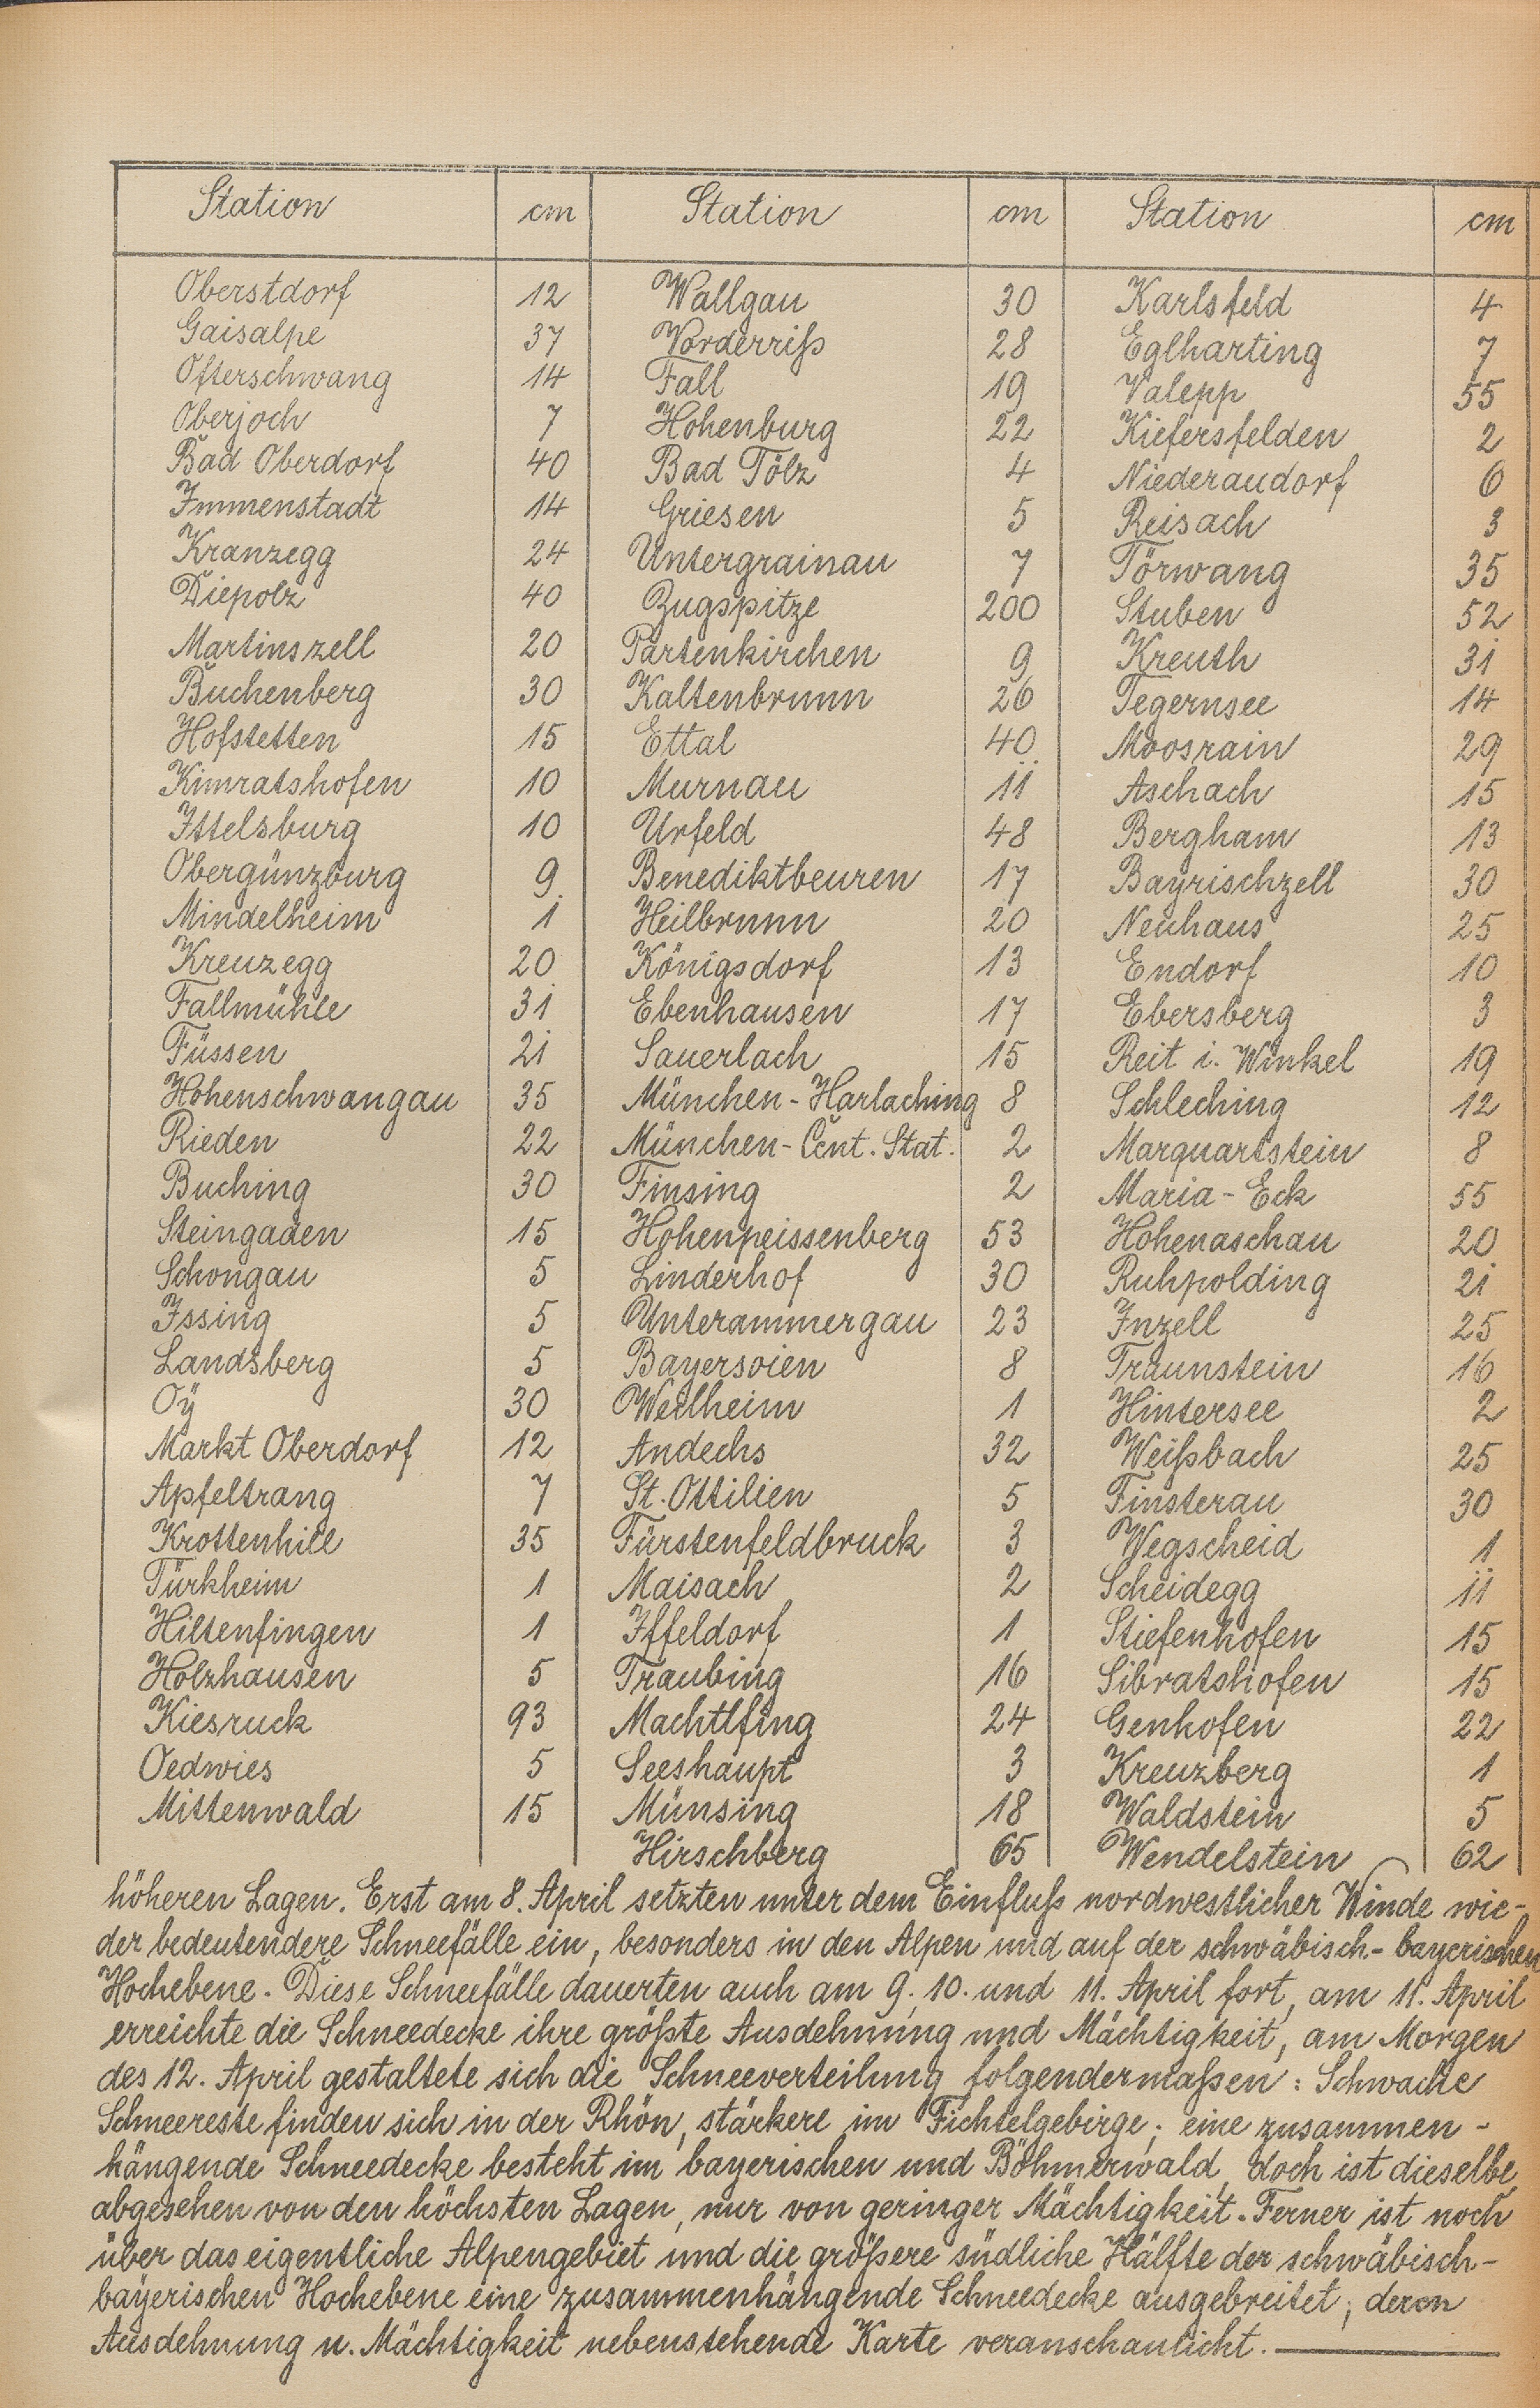 Station cm Station cm Station cm
Oberstdorf 12 Wallgau 30 Karlsfeld 4
Gaisalpe 37 Vorderriß 28 Eglharting 7
Ofterschwang 14 Fall 19 Valepp 55
Oberjoch 7 Hohenburg 22 Kiefersfelden 2
Bad Oberdorf 40 Bad Tölz 4 Niederaudorf 6
Immenstadt 14 Griesen 5 Reisach 3
Kranzegg 24 Untergrainau 7 Törwang 35
Diepolz 40 Zugspitze 200 Stuben 52
Martinszell 20 Partenkirchen 9 Kreuth 31
Buchenberg 30 Kaltenbrunn 26 Tegernsee 14
Hofstetten 15 Ettal 40 Moosrain 29
Kimratshofen 10 Murnau 11 Aschach 15
Ittelsburg 10 Urfeld 48 Bergham 13
Obergünzburg 9 Benediktbeuren 17 Bayrischzell 30
Mindelheim 1 Heilbrunn 20 Neuhaus 25
Kreuzegg 20 Königsdorf 13 Endorf 10
Fallmühle 31 Ebenhausen 17 Ebersberg 3
Füssen 21 Sauerlach 15 Reit i. Winkel 19
Hohenschwangau 35 München-Harlaching 8 Schleching 12
Rieden 22 München-Cent. Stat. 2 Marquartstein 8
Buching 30 Finsing 2 Maria-Eck 55
Steingaden 15 Hohenpeissenberg 53 Hohenaschau 20
Schongau 5 Linderhof 30 Ruhpolding 21
Issing 5 Unterammergau 23 Inzell 25
Landsberg 5 Bayersoien 8 Traunstein 16
Oÿ 30 Weilheim 1 Hintersee 2
Markt Oberdorf 12 Andechs 32 Weißbach 25
Apfeltrang 7 St. Ottilien 5 Finsterau 30
Krottenhill 35 Fürstenfeldbruck 3 Wegscheid 1
Türkheim 1 Maisach 2 Scheidegg 11
Hiltenfingen 1 Iffeldorf 1 Stiefenhofen 15
Holzhausen 5 Traubing 16 Sibratshofen 15
Kiesruck 93 Machtlfing 24 Genhofen 22
Oedwies 5 Seeshaupt 3 Kreuzberg 1
Mittenwald 15 Münsing 18 Waldstein 5
Hirschberg 65 Wendelstein 62
höheren Lagen. Erst am 8. April setzten unter dem Einfluß nordwestlicher Winde wie-
der bedeutendere Schneefälle ein, besonders in den Alpen und auf der schwäbisch-bayerischen
Hochebene. Diese Schneefälle dauerten auch am 9. 10. und 11. April fort, am 11. April
erreichte die Schneedecke ihre größte Ausdehnung und Mächtigkeit, am Morgen
des 12. April gestaltete sich die Schneeverteilung folgendermaßen: Schwache
Schneereste finden sich in der Rhön, stärkere im Fichtelgebirge; eine zusammen-
hängende Schneedecke besteht im bayerischen und Böhmerwald, doch ist dieselbe,
abgesehen von den höchsten Lagen, nur von geringer Mächtigkeit. Ferner ist noch
über das eigentliche Alpengebiet und die größere südliche Hälfte der schwäbisch-
bayerischen Hochebene eine zusammenhängende Schneedecke ausgebreitet, deren
Ausdehnung u. Mächtigkeit nebenstehende Karte veranschaulicht.